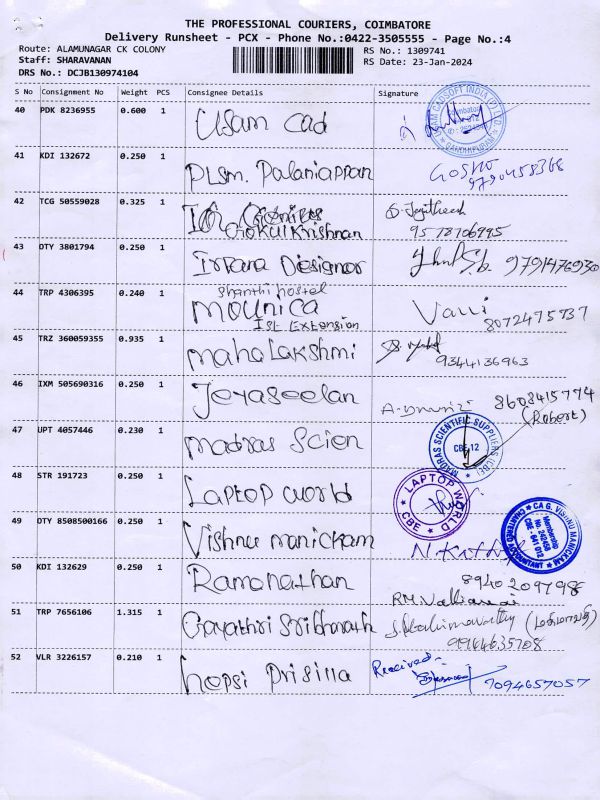 THE PROFESSIONAL COURIERS, COIMBATORE
Delivery Runsheet - PCX - Phone No.:0422-3505555 - Page No.:4
Route: ALAMUNAGAR CK COLONY
Staff: SHARAVANAN
DRS No.: DCJB130974104
RS No.: 1309741
RS Date: 23-Jan-2024
S No Consignment No Weight PCS Consignee Details Signature
40 PDK 8236955 0.600 1 Usam Cad
41 KDI 132672 0.250 1 PLSM. Palaniappan
42 TCG 50559028 0.325 1 Gokul Krishnan
9578706995
43 DTY 3801794 0.250 1 Irfana Designor
44 TRP 4306395 0.240 1 Shanthi hostel
Mounica Valli
Ist Extension 8072475737
45 TRZ 360059355 0.935 1 mahaLakshmi
9344136963
46 IXM 505690316 0.250 1 Jeyaseelan
8608415774
(Robert)
47 UPT 4057446 0.230 1 Madras Scien
MADRAS SCIENTIFIC SUPPLIERS (CBE)
CBE-12
48 STR 191723 0.250 1 Laptop World
LAPTOP WORLD
CBE
49 DTY 8508500166 0.250 1 Vishnu manickam
CA G. VISHNU MANICKAM
CHARTERED ACCOUNTANT
Membership
CBE - 641 012
50 KDI 132629 0.250 1 Ramanathan
RM.Valliamai
51 TRP 7656106 1.315 1 Gayathri Sribharath
52 VLR 3226157 0.210 1 hepsi Prisilla Received
7094657057